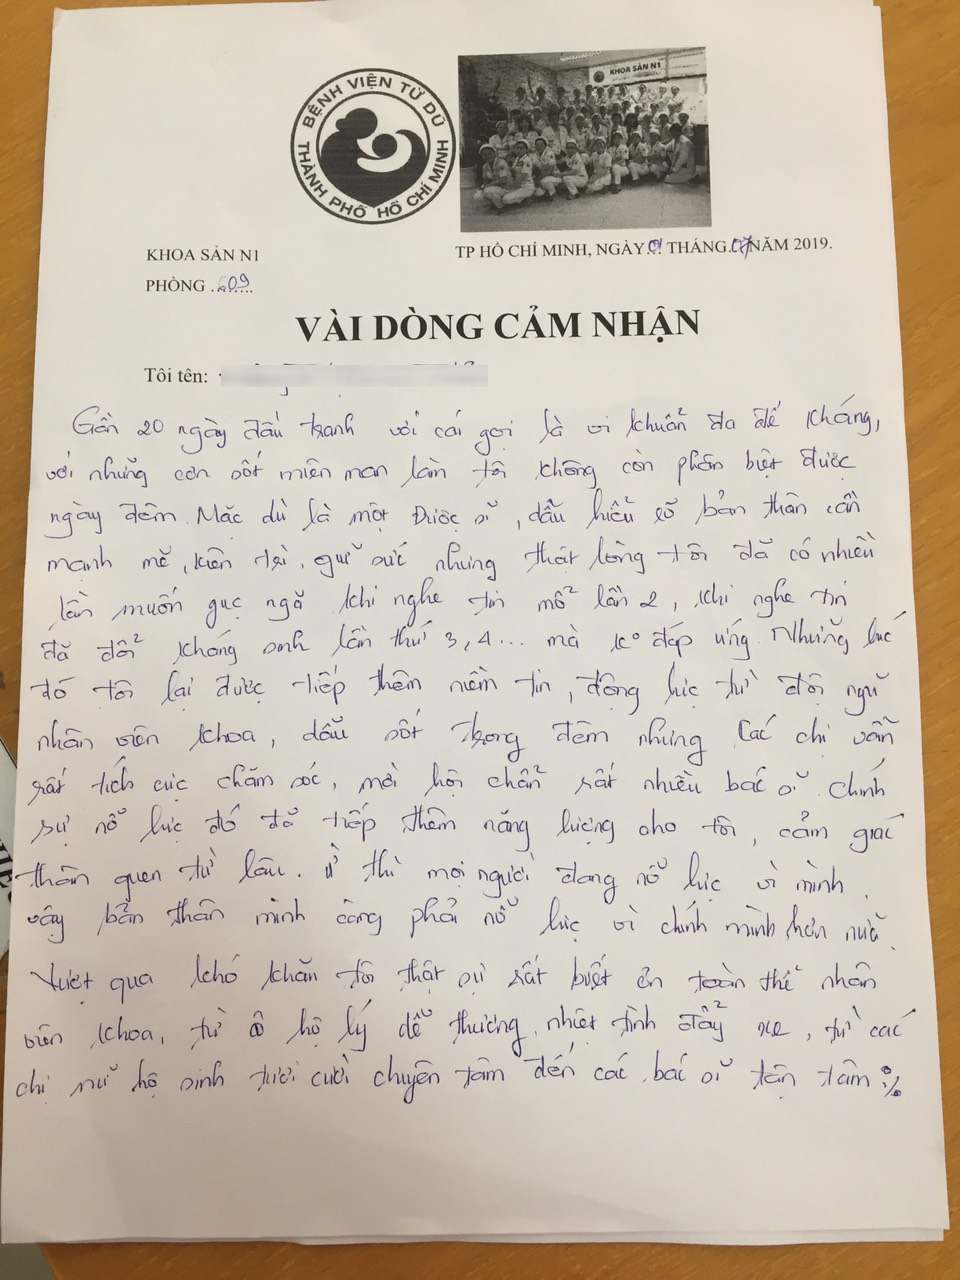 BỆNH VIỆN TỪ DŨ
THÀNH PHỐ HỒ CHÍ MINH
KHOA SẢN N1
KHOA SẢN N1
TP HỒ CHÍ MINH, NGÀY 01 THÁNG 07 NĂM 2019.
PHÒNG 609
VÀI DÒNG CẢM NHẬN
Tôi tên:
Gần 20 ngày đấu tranh với cái gọi là vi khuẩn đa đề kháng,
với những cơn sốt miên man làm tôi không còn phân biệt được
ngày đêm. Mặc dù là một Dược sĩ, dẫu hiểu rõ bản thân cần
mạnh mẽ, kiên trì, giữ sức nhưng thật lòng tôi đã có nhiều
lần muốn gục ngã khi nghe tin mổ lần 2, khi nghe tin
đã đổi kháng sinh lần thứ 3, 4... mà k° đáp ứng. Những lúc
đó tôi lại được tiếp thêm niềm tin, động lực từ đội ngũ
nhân viên khoa, dẫu sốt trong đêm nhưng các chị vẫn
rất tích cực chăm sóc, mời hội chẩn rất nhiều bác sĩ. Chính
sự nỗ lực đó đã tiếp thêm năng lượng cho tôi, cảm giác
thân quen từ lâu. Ừ thì mọi người đang nỗ lực vì mình,
vậy bản thân mình càng phải nỗ lực vì chính mình hơn nữa.
Vượt qua khó khăn tôi thật sự rất biết ơn toàn thể nhân
viên khoa, từ hộ lý dễ thương, nhiệt tình đẩy xe, từ các
chị nữ hộ sinh tươi cười chuyên tâm đến các bác sĩ tận tâm